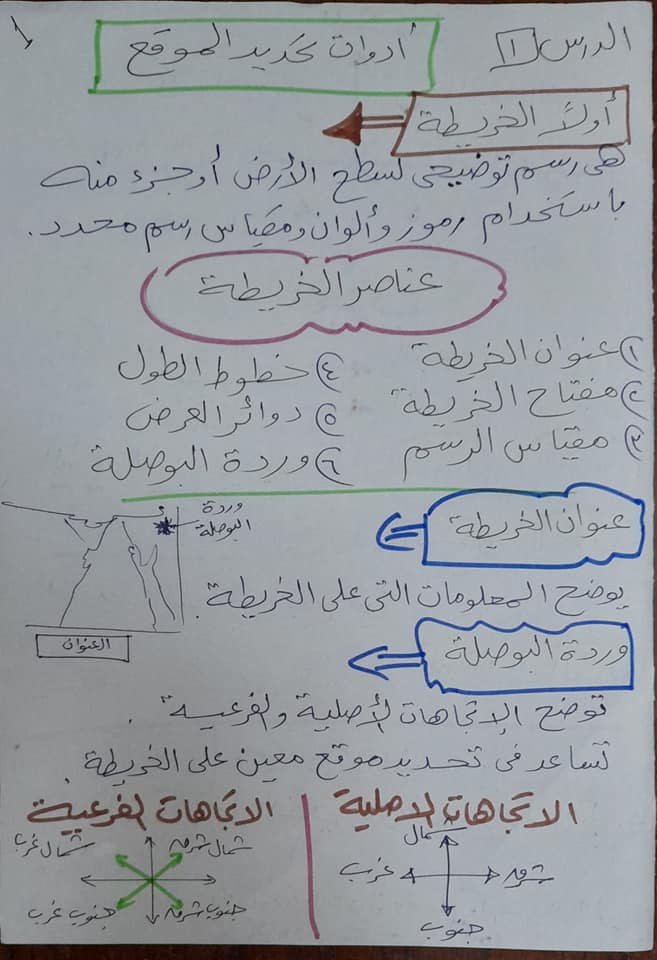 ١
الدرس ١
أدوات تحديد الموقع
أولاً الخريطة
هى رسم توضيحى لسطح الأرض أو جزء منه
باستخدام رموز وألوان ومقياس رسم محدد.
عناصر الخريطة
١) عنوان الخريطة
٢) مفتاح الخريطة
٣) مقياس الرسم
٤) خطوط الطول
٥) دوائر العرض
٦) وردة البوصلة
عنوان الخريطة
يوضح المعلومات التى على الخريطة.
وردة
البوصلة
العنوان
وردة البوصلة
توضح الإتجاهات الأصلية والفرعية.
تساعد فى تحديد موقع معين على الخريطة.
الاتجاهات الاصلية
شمال
شرق
غرب
جنوب
الاتجاهات الفرعية
شمال شرق
شمال غرب
جنوب شرق
جنوب غرب